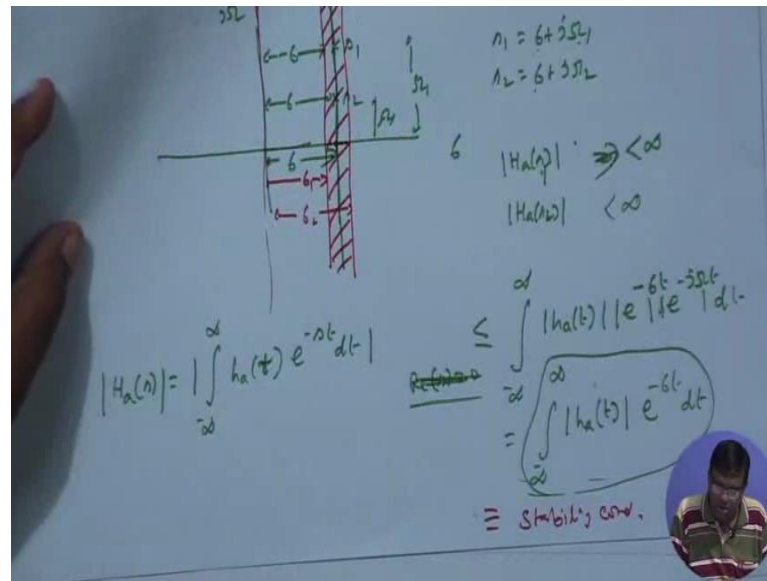 jΩ
σ s1
σ s2
σ
σ1
σ2
Ω1
Ω2
s1 = σ + jΩ1
s2 = σ + jΩ2
σ
|Ha(s1)| < ∞
|Ha(s2)| < ∞
|Ha(s)| = |∫_{-∞}^{∞} ha(t) e^{-st} dt|
≤ ∫_{-∞}^{∞} |ha(t)| |e^{-σt}| |e^{-jΩt}| dt
= ∫_{-∞}^{∞} |ha(t)| e^{-σt} dt
≡ Stability cond.